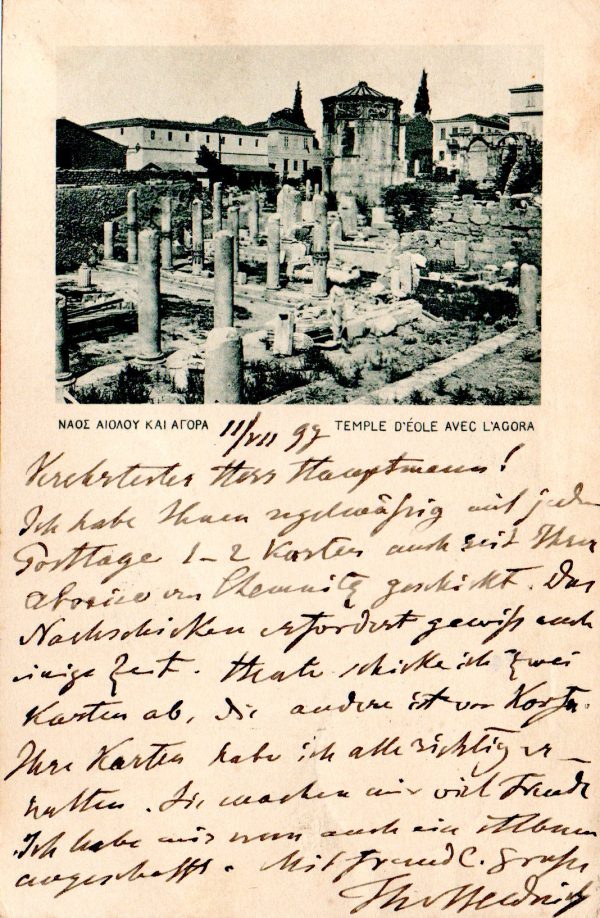 ΝΑΟΣ ΑΙΟΛΟΥ ΚΑΙ ΑΓΟΡΑ
TEMPLE D'ÉOLE AVEC L'AGORA
11/VII 97
Verehrtester Herr Hauptmann!
Ich habe Ihnen regelmäßig mit jedem
Posttage 1–2 Karten auch seit Ihrer
Abreise von Chemnitz geschickt. Das
Nachschicken erfordert gewiß auch
einige Zeit. Heute schicke ich zwei
Karten ab, die andere ist von Korfu.
Ihre Karten habe ich alle richtig er-
halten. Sie machen mir viel Freude
Ich habe mir nun auch ein Album
angeschafft. Mit freundl. Gruße